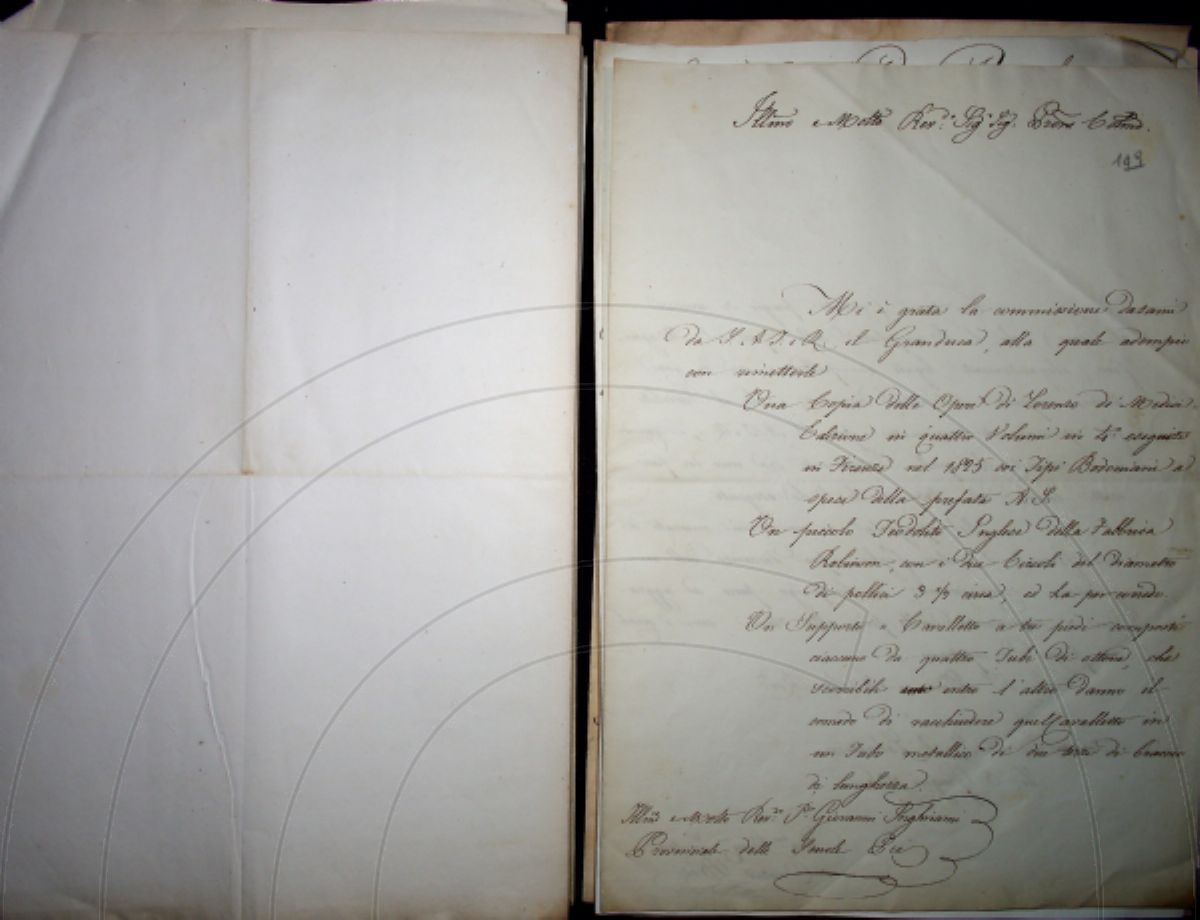 Illmo e Molto Rev.º Sig.ʳ Sig. Prone Colmo.
193
Mi è grata la commissione datami
da S. A. I. e R. il Granduca, alla quale adempio
con rimetterle
Una Copia delle Opere di Lorenzo de Medici
Edizione in quattro Volumi in 4º eseguita
in Firenze nel 1825 coi Tipi Bodoniani a
spese della prefata A. S.
Un piccolo Teodolite Inglese della Fabbrica
Robinson, con i due Circoli del diametro
di pollici 3 ½ circa, ed ha per
Un Supporto o Cavalletto a tre piedi composti
ciascuno da quattro Tubi di ottone, che
scevibili entro l'altro danno il
comodo di racchiudere quel Cavalletto in
un Tubo metallico di due terzi di braccio
di lunghezza.
Illmo e Molto Rev.do P.re Giovanni Inghirami
Provinciale delle Scuole Pie